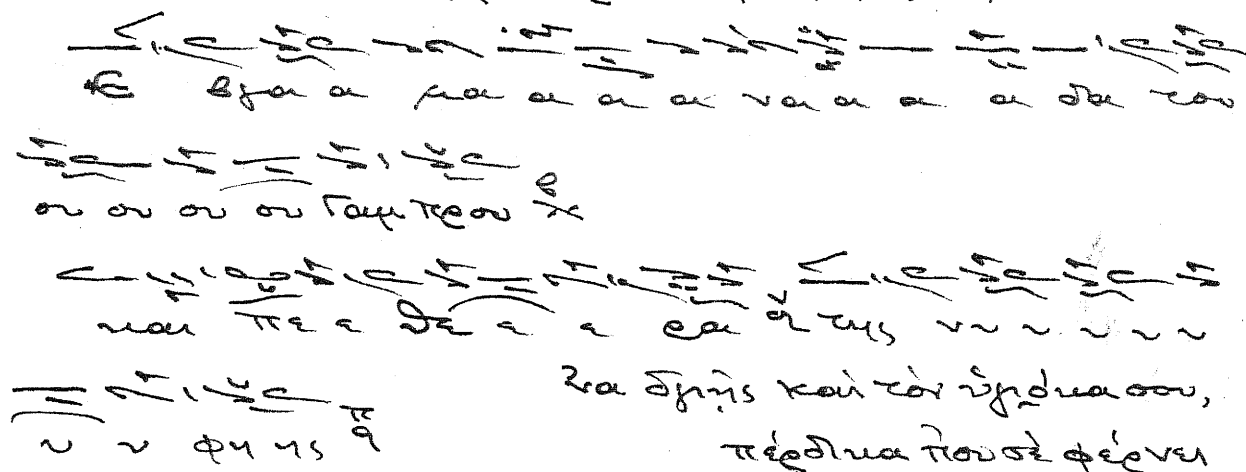 Ε βγα α μα α α α να α α α δα του
ου ου ου ου Γαμ πρου
και πε ε θε ε ε ρα της νυ υ υ υ υ
υ υ φη ης
Να δγῆς καὶ τὸν ὑγιόκα σου,
πέρδικα ποὺ σὲ φέρνει